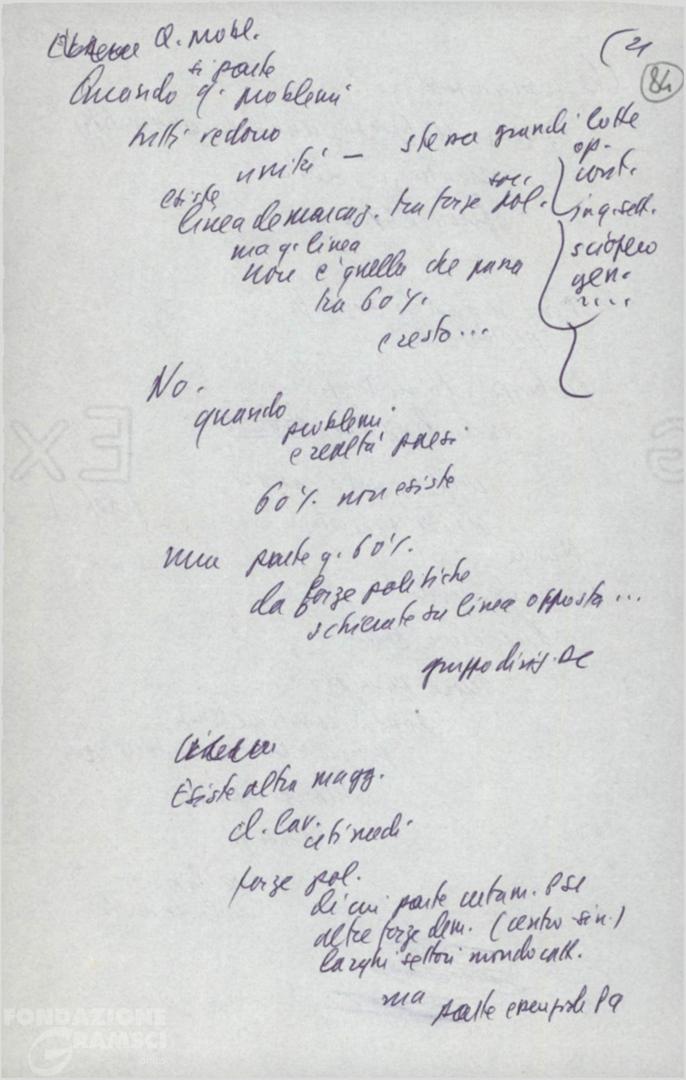 Q. probl.
(21
84
si parte
Quando q. problemi
tutti vedono
unità — stessa grandi lotte
op.
cont.
esiste
soc.
linea demarcaz. tra forze pol.
ing. sett.
ma q. linea
sciopero
non è quella che passa
gen.
tra 60%.
e resto...
No.
quando
problemi
e realtà paesi
60%. non esiste
una parte q. 60%.
da forze politiche
schierate su linea opposta...
gruppo dirig. DC
Esiste altra magg.
cl. lav.
ceti medi
forze pol.
di cui parte certam. PSI
altre forze dem. (centro-sin.)
larghi settori mondo catt.
ma parte essenziale
FONDAZIONE
GRAMSCI